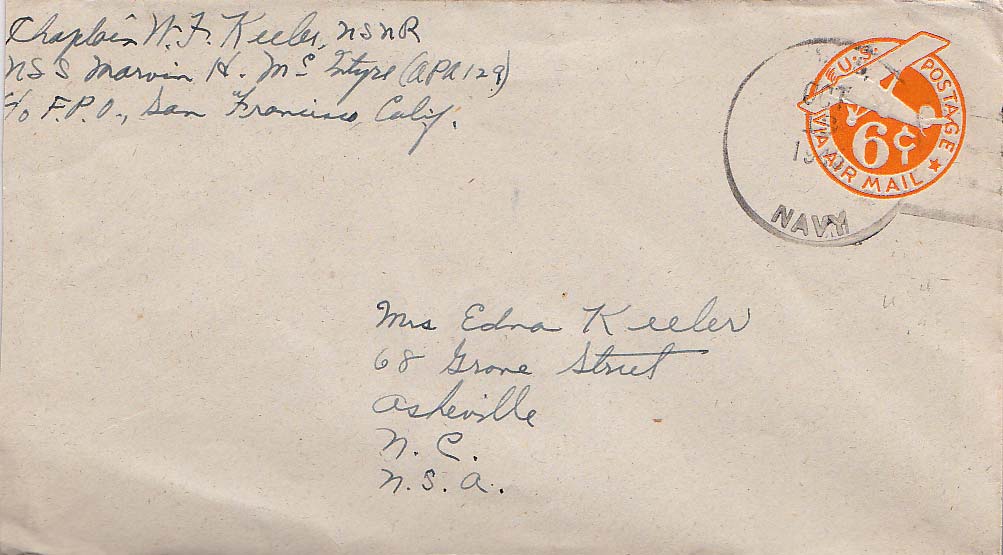 Chaplain W. F. Keeler, USNR
USS Marvin H. Mc Intyre (APA 129)
c/o F.P.O., San Francisco, Calif.
U.S. POSTAGE
VIA AIR MAIL
6¢
U.S.
OCT
NAVY
Mrs Edna Keeler
68 Grove Street
Asheville
N. C.
U.S.A.